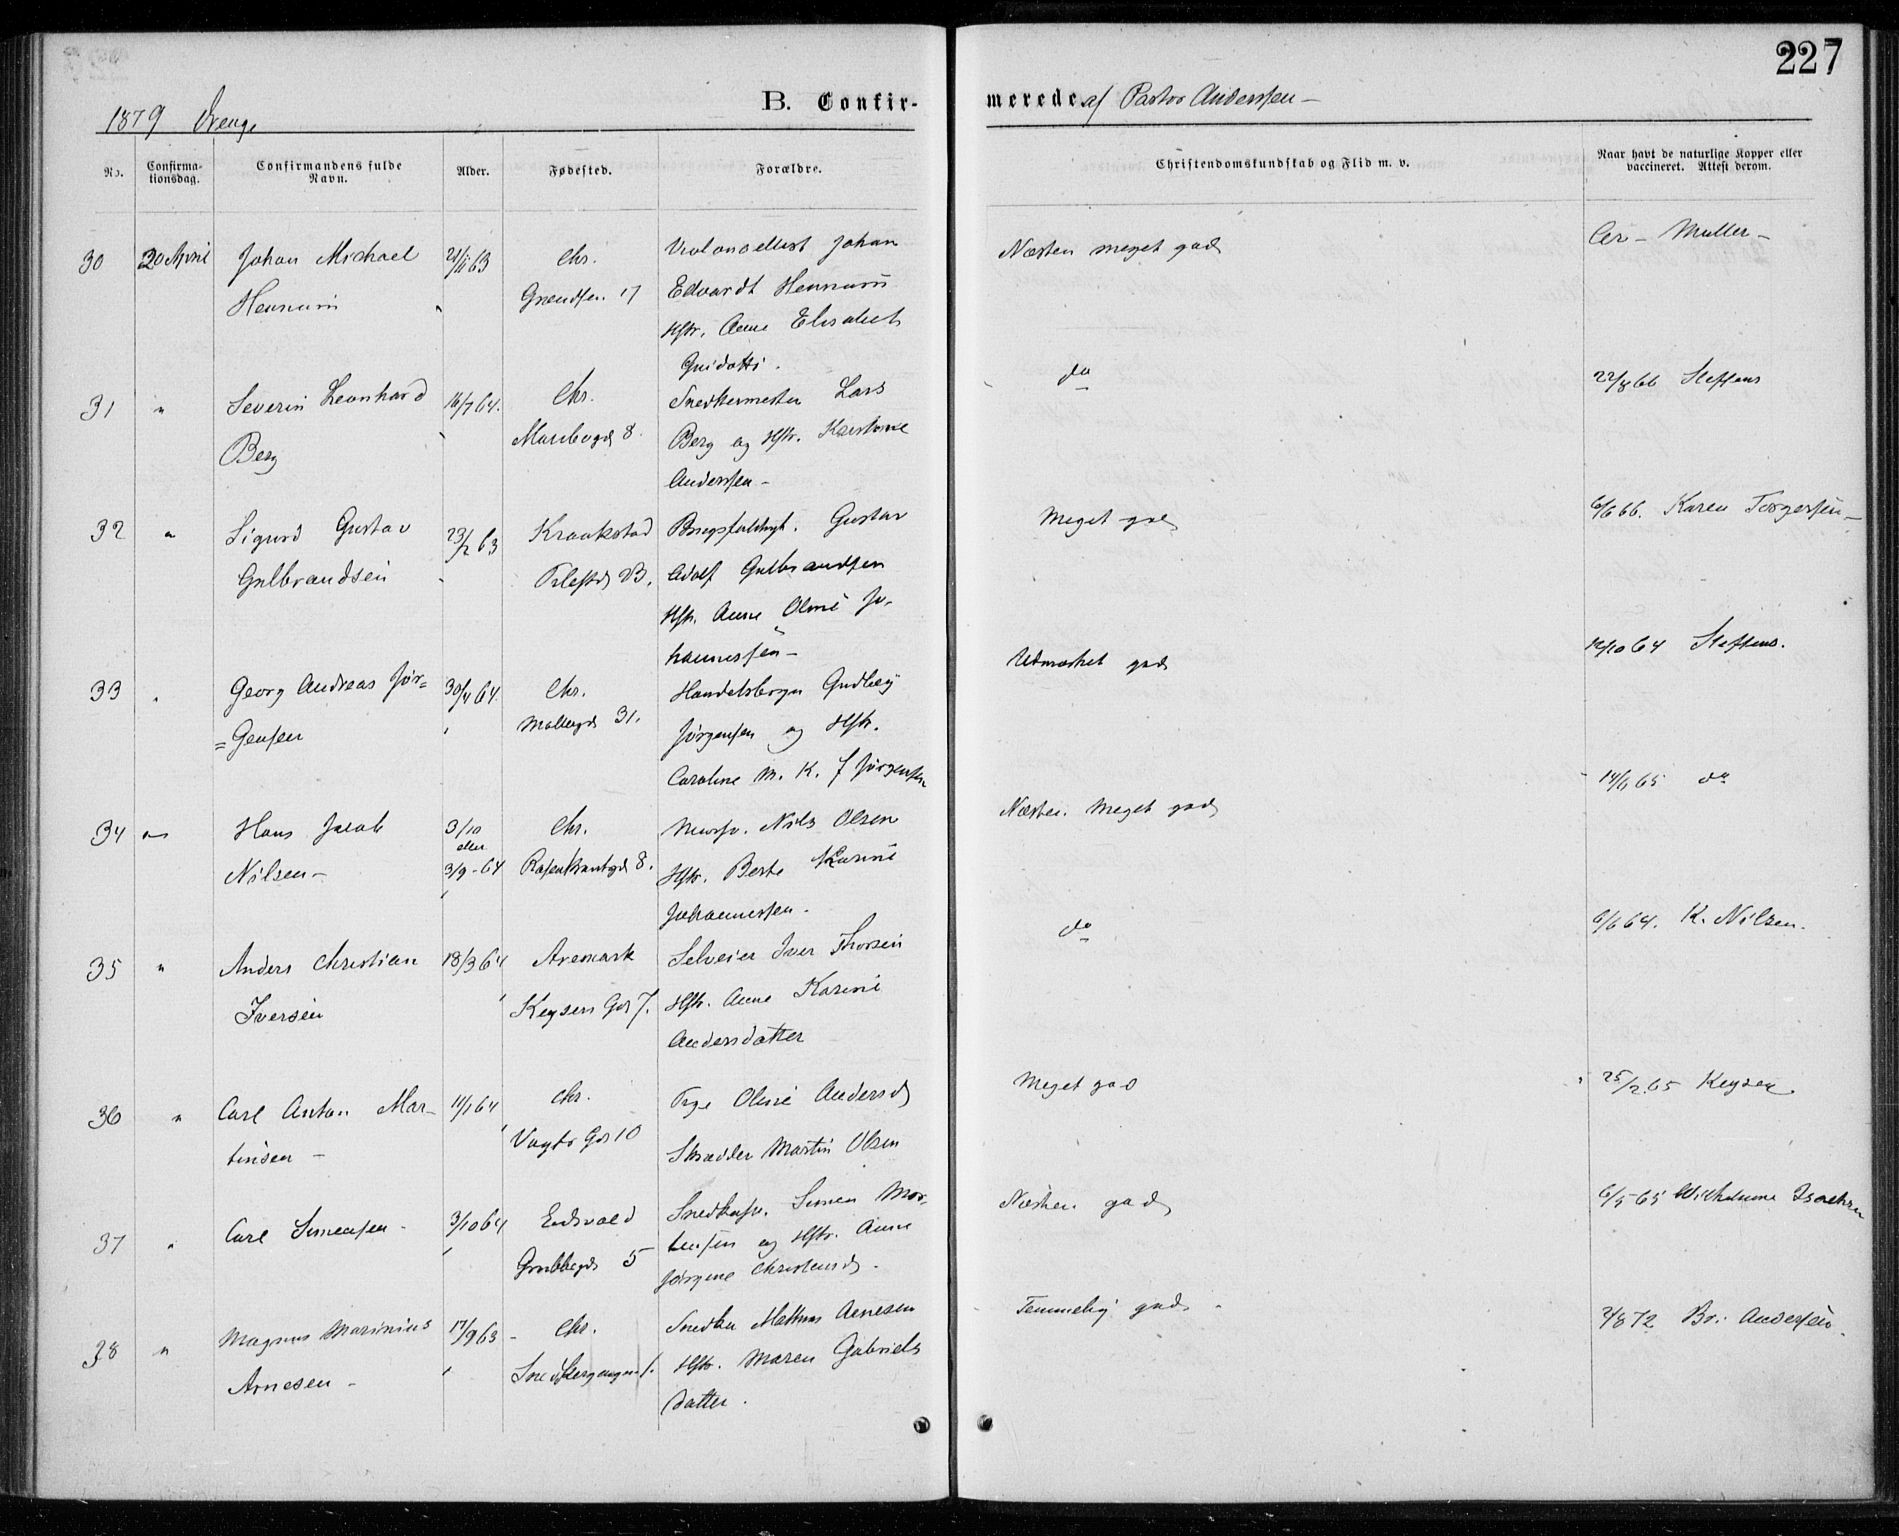 227
1879 Drenge
B. Confirmerede af Pastor Anderssen –
No.
Confirmationsdag.
Confirmandens fulde Navn.
Alder.
Fødested.
Forældre.
Christendomskundskab og Flid m. v.
Naar havt de naturlige Kopper eller vaccineret. Attest derom.
30 20 April Johan Michael 21/11 63 Chr. Violoncellist Johan Næsten meget god Müller –
Hennum Grændsen 17 Edvardt Hennum
Hstr. Anne Elisabet
Guidotti.
31 " Severin Leonhard 16/7 64. Chr. Snedkermester Lars do 22/8 66 Steffens
Berg Maribogd 8. Berg og Hstr.
Anderssen –
32 " Sigurd Gustav 23/2 63 Kraakstad Gustav Meget god 6/6 66. Karen Torgersen –
Gulbrandsen B. Adolf Gulbrandsen
Hstr. Anne Oline Jo-
hannessen –
33 " Georg Andreas Jør= 30/4 64. Chr. Handelsborger Gudbrg Udmærket god 12/10 64 Steffens.
=Gensen Møllergd 31. Jørgensen og Hstr.
Caroline M. K. F Jørgensen
34 " Hans Jacob 3/10 Chr. Murso. Nils Olsen Næsten Meget god 14/6 65 do
eller
Nilsen – 3/9 - 64 Rosenkrantzgd 8. Hstr. Berte Karine
Johannessen.
35 " Anders Christian 18/3 64 Aremark Selveier Iver Thorsen do 6/6 64. K. Nilsen.
Iversen Keysers Gd 7. Hstr. Anne Karine
Andersdatter
36 " Carl Anton Mar- 11/1 64 Chr. Pige Oline Andersd Meget god 25/2 65 Keyser
tinsen – Vogts Gd 10 Skrædder Martin Olsen
37 " Carl Simensen – 3/10 64 Eidsvold Simen Mor- Næsten god 6/5 65 Wilhelmine Isachsen
Grubbegd 5 tensen og Hstr. Anne
Jørgine Christensd.
38 " Magnus Marinius 17/9 63 – Chr. Snedker Mathias Arnesen Temmelig god. 2/8 72 Br. Andersen.
Arnesen – Hstr. Maren Gabriels
datter.